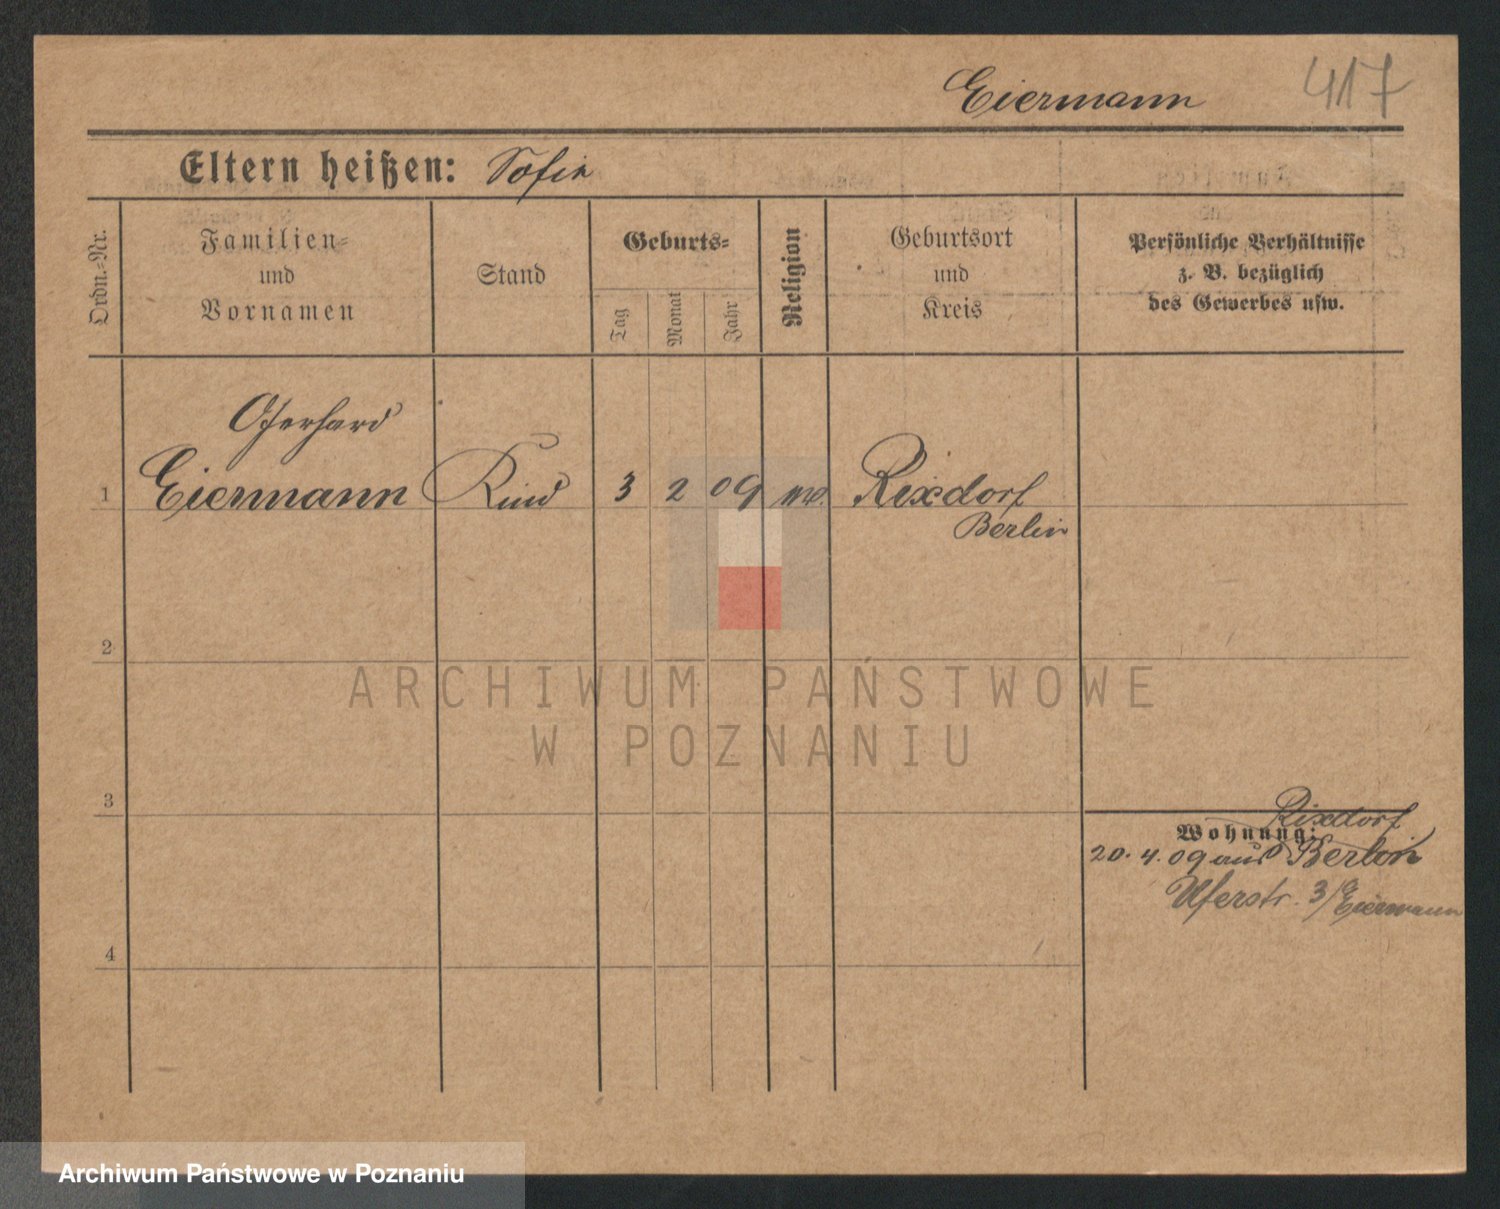 Eiermann 417
Eltern heißen: Sofia
Ordn.-Nr.
Familien-
und
Vornamen
Stand
Geburts-
Tag
Monat
Jahr
Religion
Geburtsort
und
Kreis
Persönliche Verhältnisse
z. B. bezüglich
des Gewerbes usw.
Gerhard
1 Eiermann Kind 3 2 09 Rixdorf
Berlin
2
3
Rixdorf
Wohnung:
20. 4. 09 aus Berlin
Uferstr. 3/Eiermann
4
ARCHIWUM PAŃSTWOWE
W POZNANIU
Archiwum Państwowe w Poznaniu